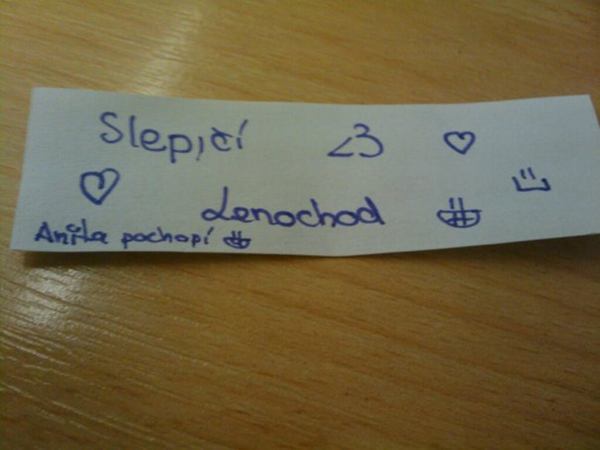 Slepičí <3
Lenochod
Anička pochopí